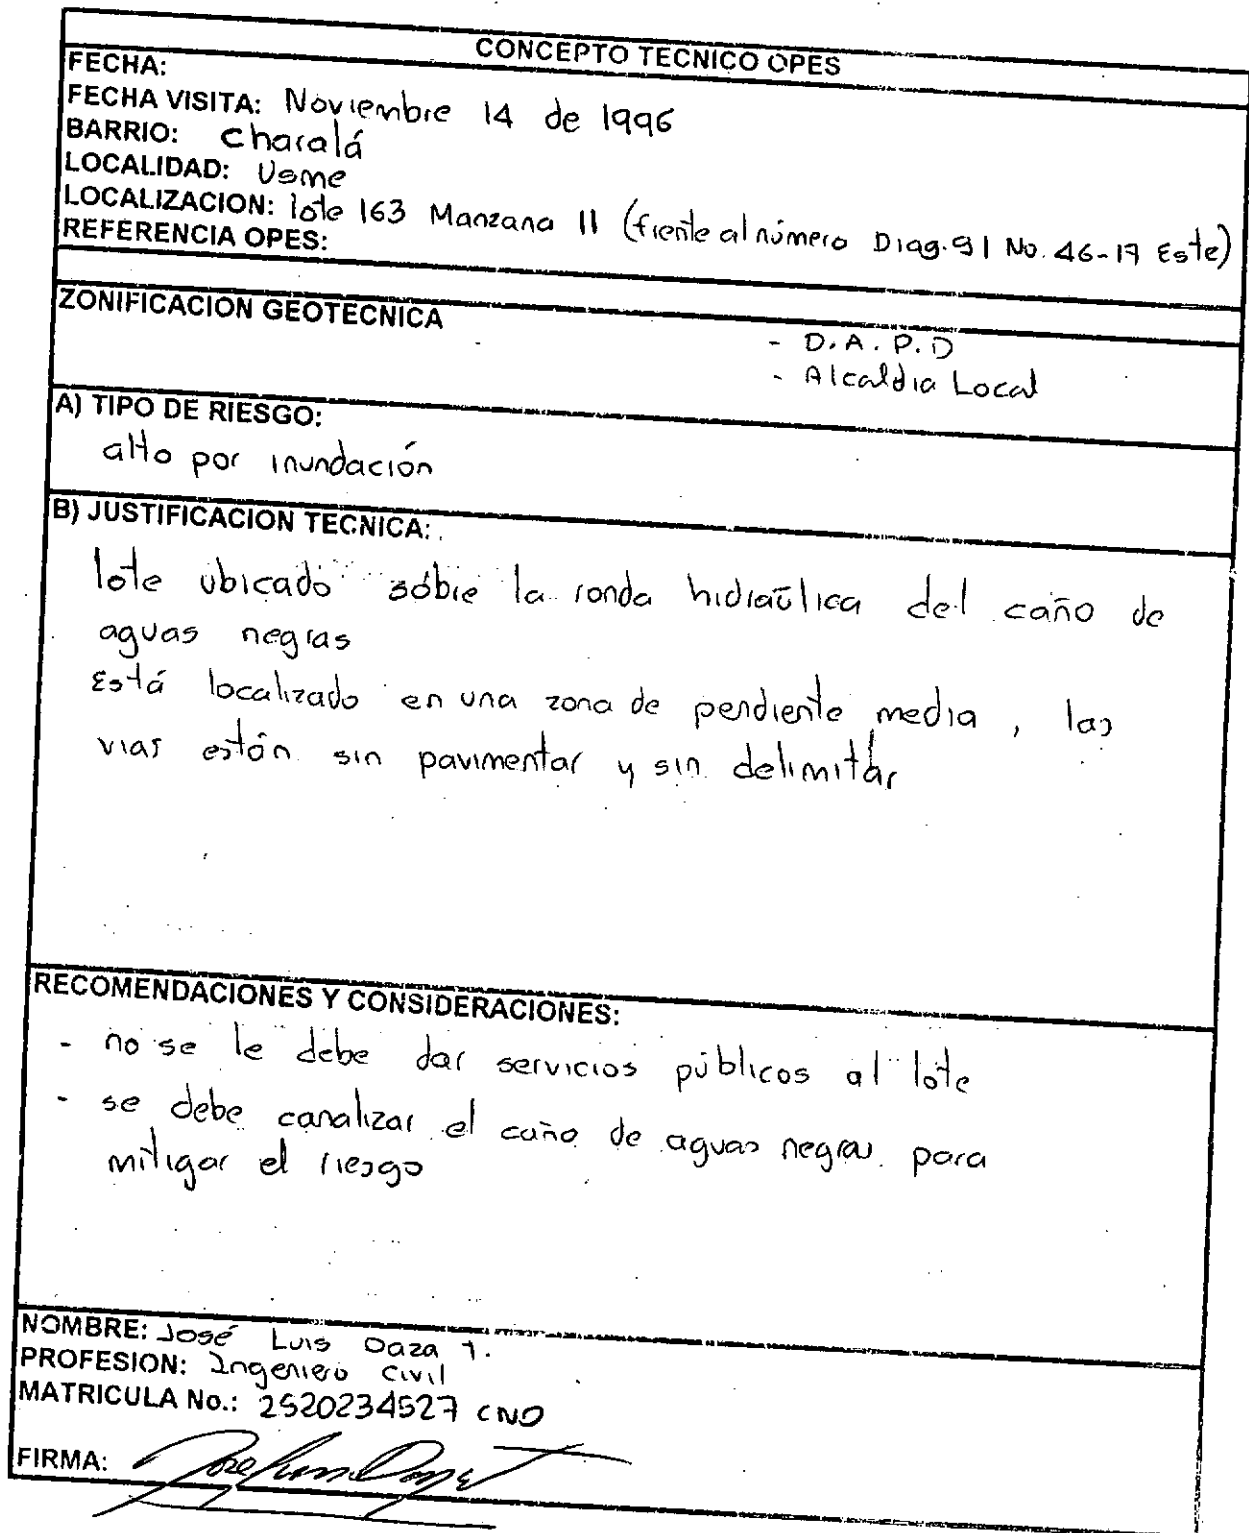 CONCEPTO TECNICO OPES
FECHA:
FECHA VISITA: Noviembre 14 de 1996
BARRIO: Charalá
LOCALIDAD: Usme
LOCALIZACION: lote 163 Manzana 11 (frente al número Diag. 91 No. 46-17 Este)
REFERENCIA OPES:
ZONIFICACION GEOTECNICA
- D.A.P.D
- Alcaldia Local
A) TIPO DE RIESGO:
alto por inundación
B) JUSTIFICACION TECNICA:
lote ubicado sobre la ronda hidraúlica del caño de
aguas negras
Está localizado en una zona de pendiente media, las
vias están sin pavimentar y sin delimitar
RECOMENDACIONES Y CONSIDERACIONES:
- no se le debe dar servicios públicos al lote
- se debe canalizar el caño de aguas negras para
mitigar el riesgo
NOMBRE: José Luis Daza T.
PROFESION: Ingeniero Civil
MATRICULA No.: 2520234527 CND
FIRMA: